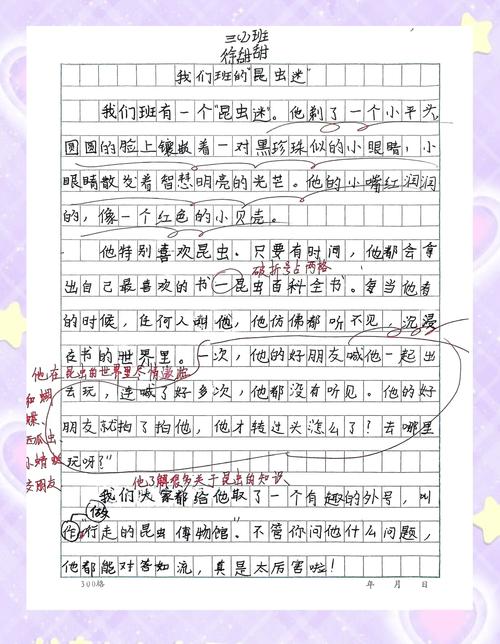 三(2)班
徐甜甜
我们班的"昆虫迷"
我们班有一个"昆虫迷"。他剃了一个小平头,
圆圆的脸上镶嵌着一对黑珍珠似的小眼睛,小
眼睛散发着智慧明亮的光芒。他的小嘴红润润
的,像一个红色的小贝壳。
他特别喜欢昆虫。只要有时间,他都会拿
破折号占两格
出自己最喜欢的书—昆虫百科全书。每当他看
的时候,任何人叫他,他仿佛都听不见,沉浸
在书的世界里。一次,他的好朋友喊他一起出
他在昆虫的世界里尽情遨游
和蝴
蝶、
西瓜虫、
小蜻蜓
交朋友
去玩,连喊了好多次,他都没有听见。他的好
朋友就拍了拍他,他才转过头怎么了?去哪里
玩呀?"
他了解很多关于昆虫的知识
我们大家都给他取了一个有趣的外号,叫
做
作"行走的昆虫博物馆"。不管你问他什么问题,
他都能对答如流,真是太厉害啦!
300格
年 月 日